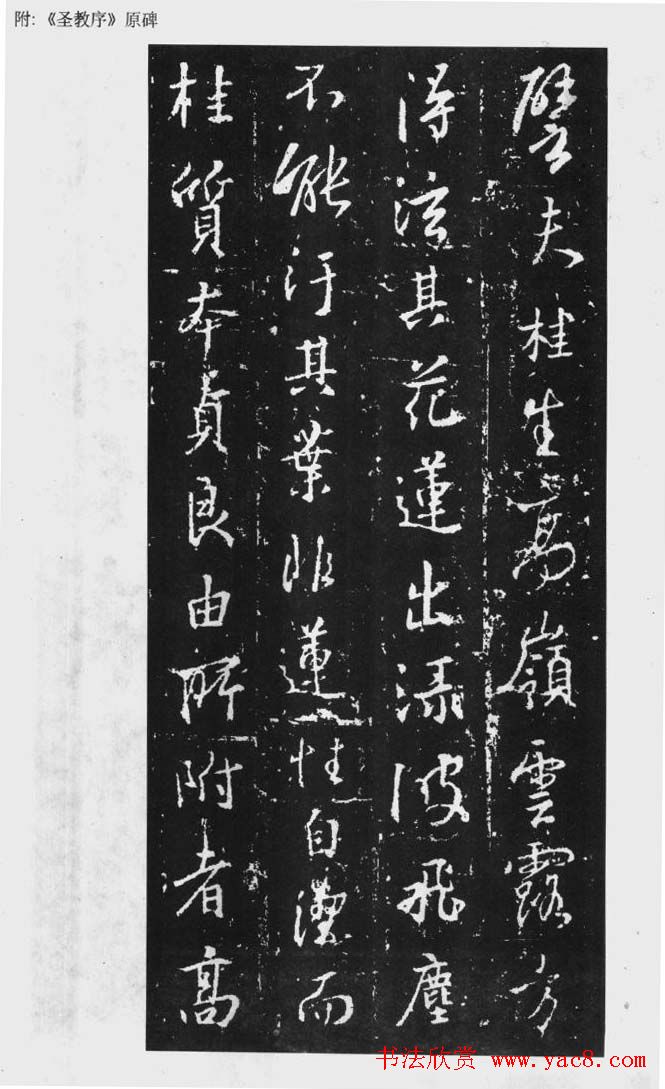 附:《圣教序》原碑
譬夫桂生高嶺雲露方
得泫其花蓮出淥波飛塵
不能汙其葉非蓮性自潔而
桂質本貞良由所附者高
书法欣赏 www.yac8.com